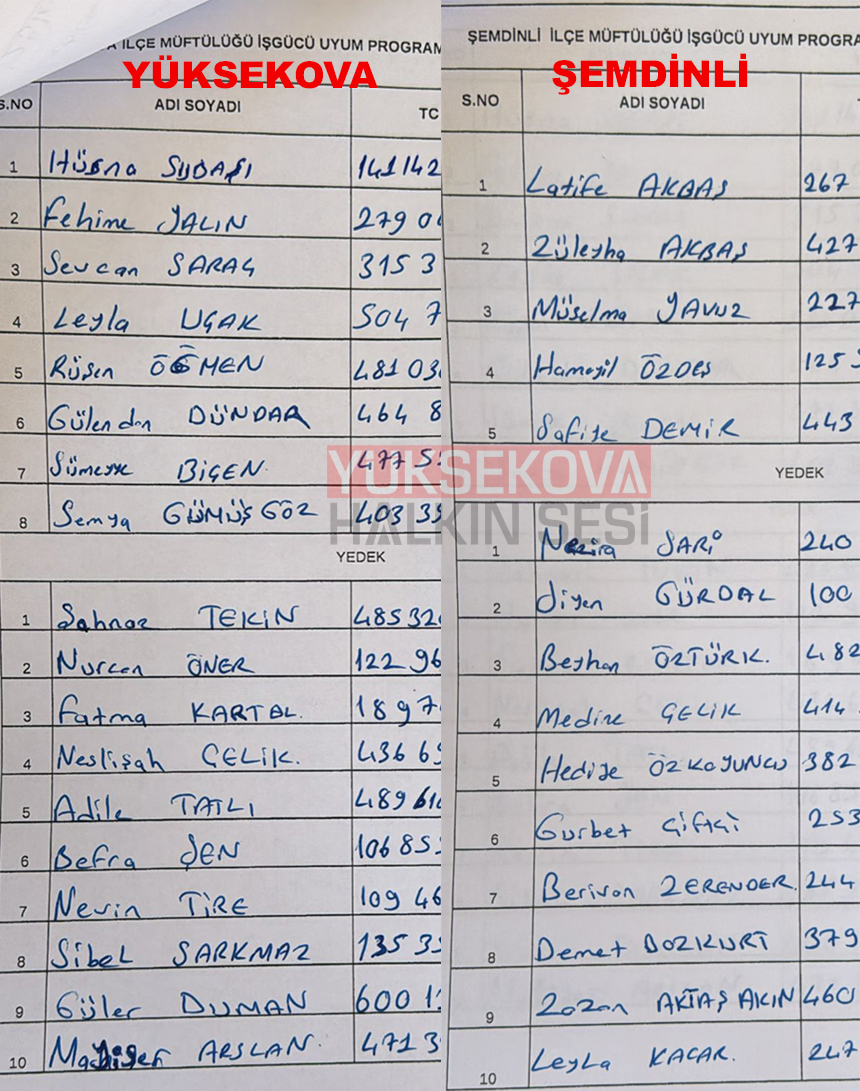 A İLÇE MÜFTÜLÜĞÜ İŞGÜCÜ UYUM PROGRAM
YÜKSEKOVA
S.NO ADI SOYADI TC
1 Hüsna SUBAŞI 141142
2 Fehime YALIN 279 0
3 Sevcan SARAÇ 315 3
4 Leyla UÇAK 504 7
5 Rüşen ÖĞMEN 481 03
6 Gülendan DÜNDAR 464 8
7 Sümeyye BİÇEN 477 5
8 Semya GÜMÜŞGÖZ 403 39
YEDEK
1 Şahnaz TEKİN 485 32
2 Nurcan ÖNER 122 96
3 Fatma KARTAL 189 7
4 Neslişah ÇELİK. 436 6
5 Adile TATLI 489 61
6 Befra ŞEN 106 85
7 Nevin TİRE 109 46
8 Sibel SARKMAZ 135 3
9 Güler DUMAN 600 1
10 ARSLAN. 471 3
ŞEMDİNLİ İLÇE MÜFTÜLÜĞÜ İŞGÜCÜ UYUM PROGRA
ŞEMDİNLİ
S.NO ADI SOYADI
1 Latife AKBAŞ 267
2 Züleyha AKBAŞ 427
3 Müselma YAVUZ 227
4 Hamayil ÖZDEŞ 125
5 Safiye DEMİR 443
YEDEK
1 Nezira SARİ 240
2 Diyen GÜRDAL 100
3 Beyhan ÖZTÜRK. 482
4 Medine ÇELİK 414
5 Hediye ÖZKOYUNCU 382
6 Gurbet ÇİFTÇİ 253
7 Berivan ZERENDER. 244
8 Demet BOZKURT 379
9 Zozan AKTAŞ AKIN 460
10 Leyla KAÇAR. 247
YÜKSEKOVA
HALKIN SESİ